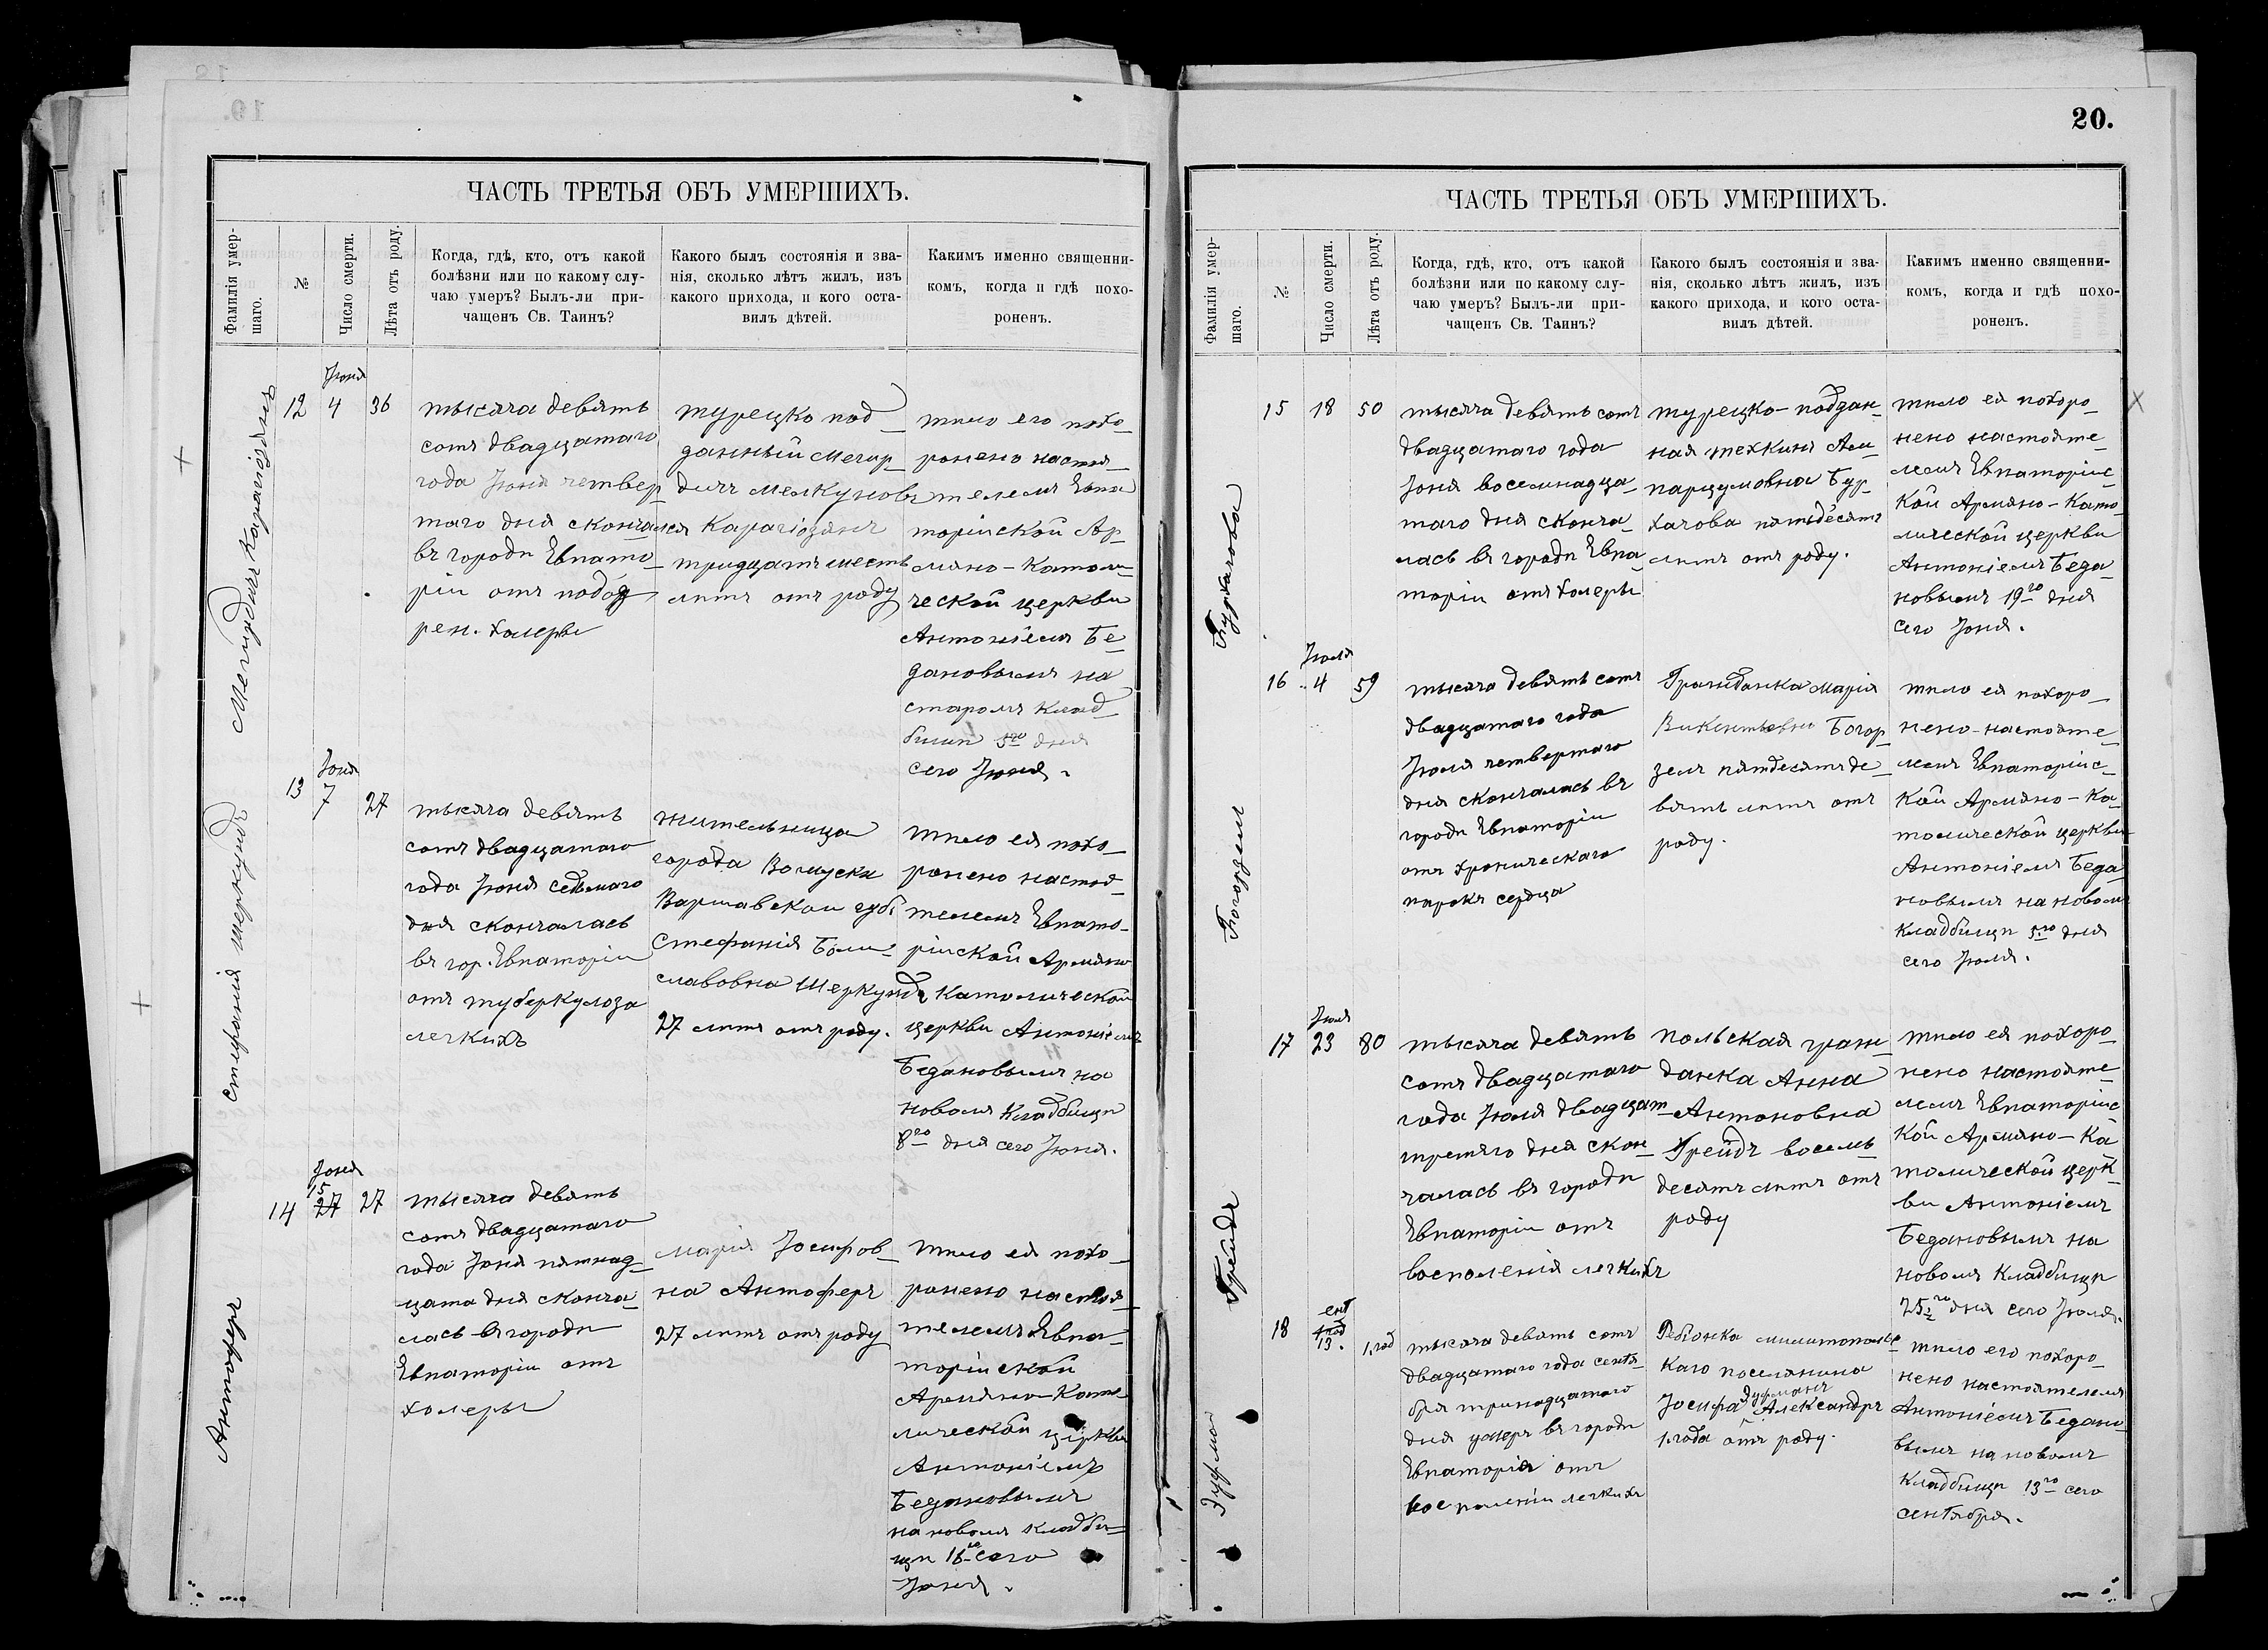 20.
ЧАСТЬ ТРЕТЬЯ ОБЪ УМЕРШИХЪ.
Фамилія умер-
шаго.
№
Число смерти.
Лѣта отъ роду.
Когда, гдѣ, кто, отъ какой
болѣзни или по какому слу-
чаю умеръ? Былъ-ли при-
чащенъ Св. Таинъ?
Какого былъ состоянія и зва-
нія, сколько лѣтъ жилъ, изъ
какого прихода, и кого оста-
вилъ дѣтей.
Какимъ именно священни-
комъ, когда и гдѣ похо-
роненъ.
Мегирдичъ Карагіозянъ
12
Іюня
4
36
тысяча девять
сотъ двадцатаго
года Іюня четвер
таго дня скончался
въ городѣ Евпато-
ріи отъ подоз
рен. холеры
турецко под-
данный Мегир-
дичъ Мелкумовъ
Карагіозянъ
тридцать шесть
лѣтъ отъ роду
тѣло его похо-
ронено настоя-
телемъ Евпа
торійской Ар-
мяно-Католи-
ческой церкви
Антоніемъ Бе-
дановымъ на
старомъ клад-
бищѣ 5го дня
сего Іюня.
Стефанія Шеркундъ
13
Іюня
7
27
тысяча девять
сотъ двадцатаго
года Іюня седьмаго
дня скончалась
въ гор. Евпаторіи
отъ туберкулоза
легкихъ
жительница
города
Варшавской губ.
Стефанія Боли-
славовна Шеркундъ
27 лѣтъ отъ роду.
тѣло ея похо-
ронено настоя-
телемъ Евпато-
рійской Армяно
Католической
церкви Антоніемъ
Бедановымъ на
новомъ Кладбищѣ
8го дня сего Іюня.
Антоферъ
14
Іюня
15
27
27
тысяча девять
сотъ двадцатаго
года Іюня пятнад-
цата дня сконча-
лась въ городѣ
Евпаторіи отъ
холеры
Марія Іосифов-
на Антоферъ
27 лѣтъ отъ роду
тѣло ея похо-
ронено настоя-
телемъ Евпа-
торійской
Армяно-Като
лической церкви
Антоніемъ
Бедановымъ
на новомъ кладби-
щѣ 16го сего
Іюня.
ЧАСТЬ ТРЕТЬЯ ОБЪ УМЕРШИХЪ.
Фамилія умер-
шаго.
№
Число смерти.
Лѣта отъ роду.
Когда, гдѣ, кто, отъ какой
болѣзни или по какому слу-
чаю умеръ? Былъ-ли при-
чащенъ Св. Таинъ?
Какого былъ состоянія и зва-
нія, сколько лѣтъ жилъ, изъ
какого прихода, и кого оста-
вилъ дѣтей.
Какимъ именно священни-
комъ, когда и гдѣ похо-
роненъ.
Бурхачова
15
18
50
тысяча девять сотъ
двадцатаго года
Іюня восемнадца-
таго дня сконча-
лась въ городѣ Евпа-
торіи отъ холеры
турецко-поддан-
ная
Парцумовна Бур-
хачова пятьдесятъ
лѣтъ отъ роду.
тѣло ея похоро-
нено настояте-
лемъ Евпаторійс-
кой Армяно-Като-
лической церкви
Антоніемъ Беда-
новымъ 19го дня
сего Іюня.
Богорзели
16
Іюля
4
59
тысяча девять сотъ
двадцатаго года
Іюля четвертаго
дня скончалась въ
городѣ Евпаторіи
отъ хроническаго
порокъ сердца
Гражданка Марія
Викентьевна Богор
зели пятдесятъ де-
вять лѣтъ отъ
роду.
тѣло ея похоро-
нено настояте-
лемъ Евпаторійс-
кой Армяно-Ка-
толической церкви
Антоніемъ Беда-
новымъ на новомъ
кладбищѣ 5го дня
сего Іюля.
Грейдъ
17
Іюля
23
80
тысяча девять
сотъ двадцатаго
года Іюля двадцат
третяго дня скон-
чалась въ городѣ
Евпаторіи отъ
восполенія легкихъ
польская граж-
данка Анна
Антоновна
Грейдъ восемь
десятъ лѣтъ отъ
роду
тѣло ея похоро-
нено настояте-
лемъ Евпаторійс
кой Армяно-Ка
толической церк-
ви Антоніемъ
Бедановымъ на
новомъ кладбищѣ
25го дня сего Іюля.
18
сент
13.
1 год
тысяча девять сотъ
двадцатаго года сентя-
бря тринадцатаго
дня умеръ въ городѣ
Евпаторія отъ
воспаленіи легкихъ
Ребіонка милитопольс-
каго поселянина
Іосифа Александръ
1 года отъ роду.
тѣло его похоро-
нено настоятелемъ
Антоніемъ Бедано-
вымъ на новомъ
кладбищѣ 13го сего
сентября.